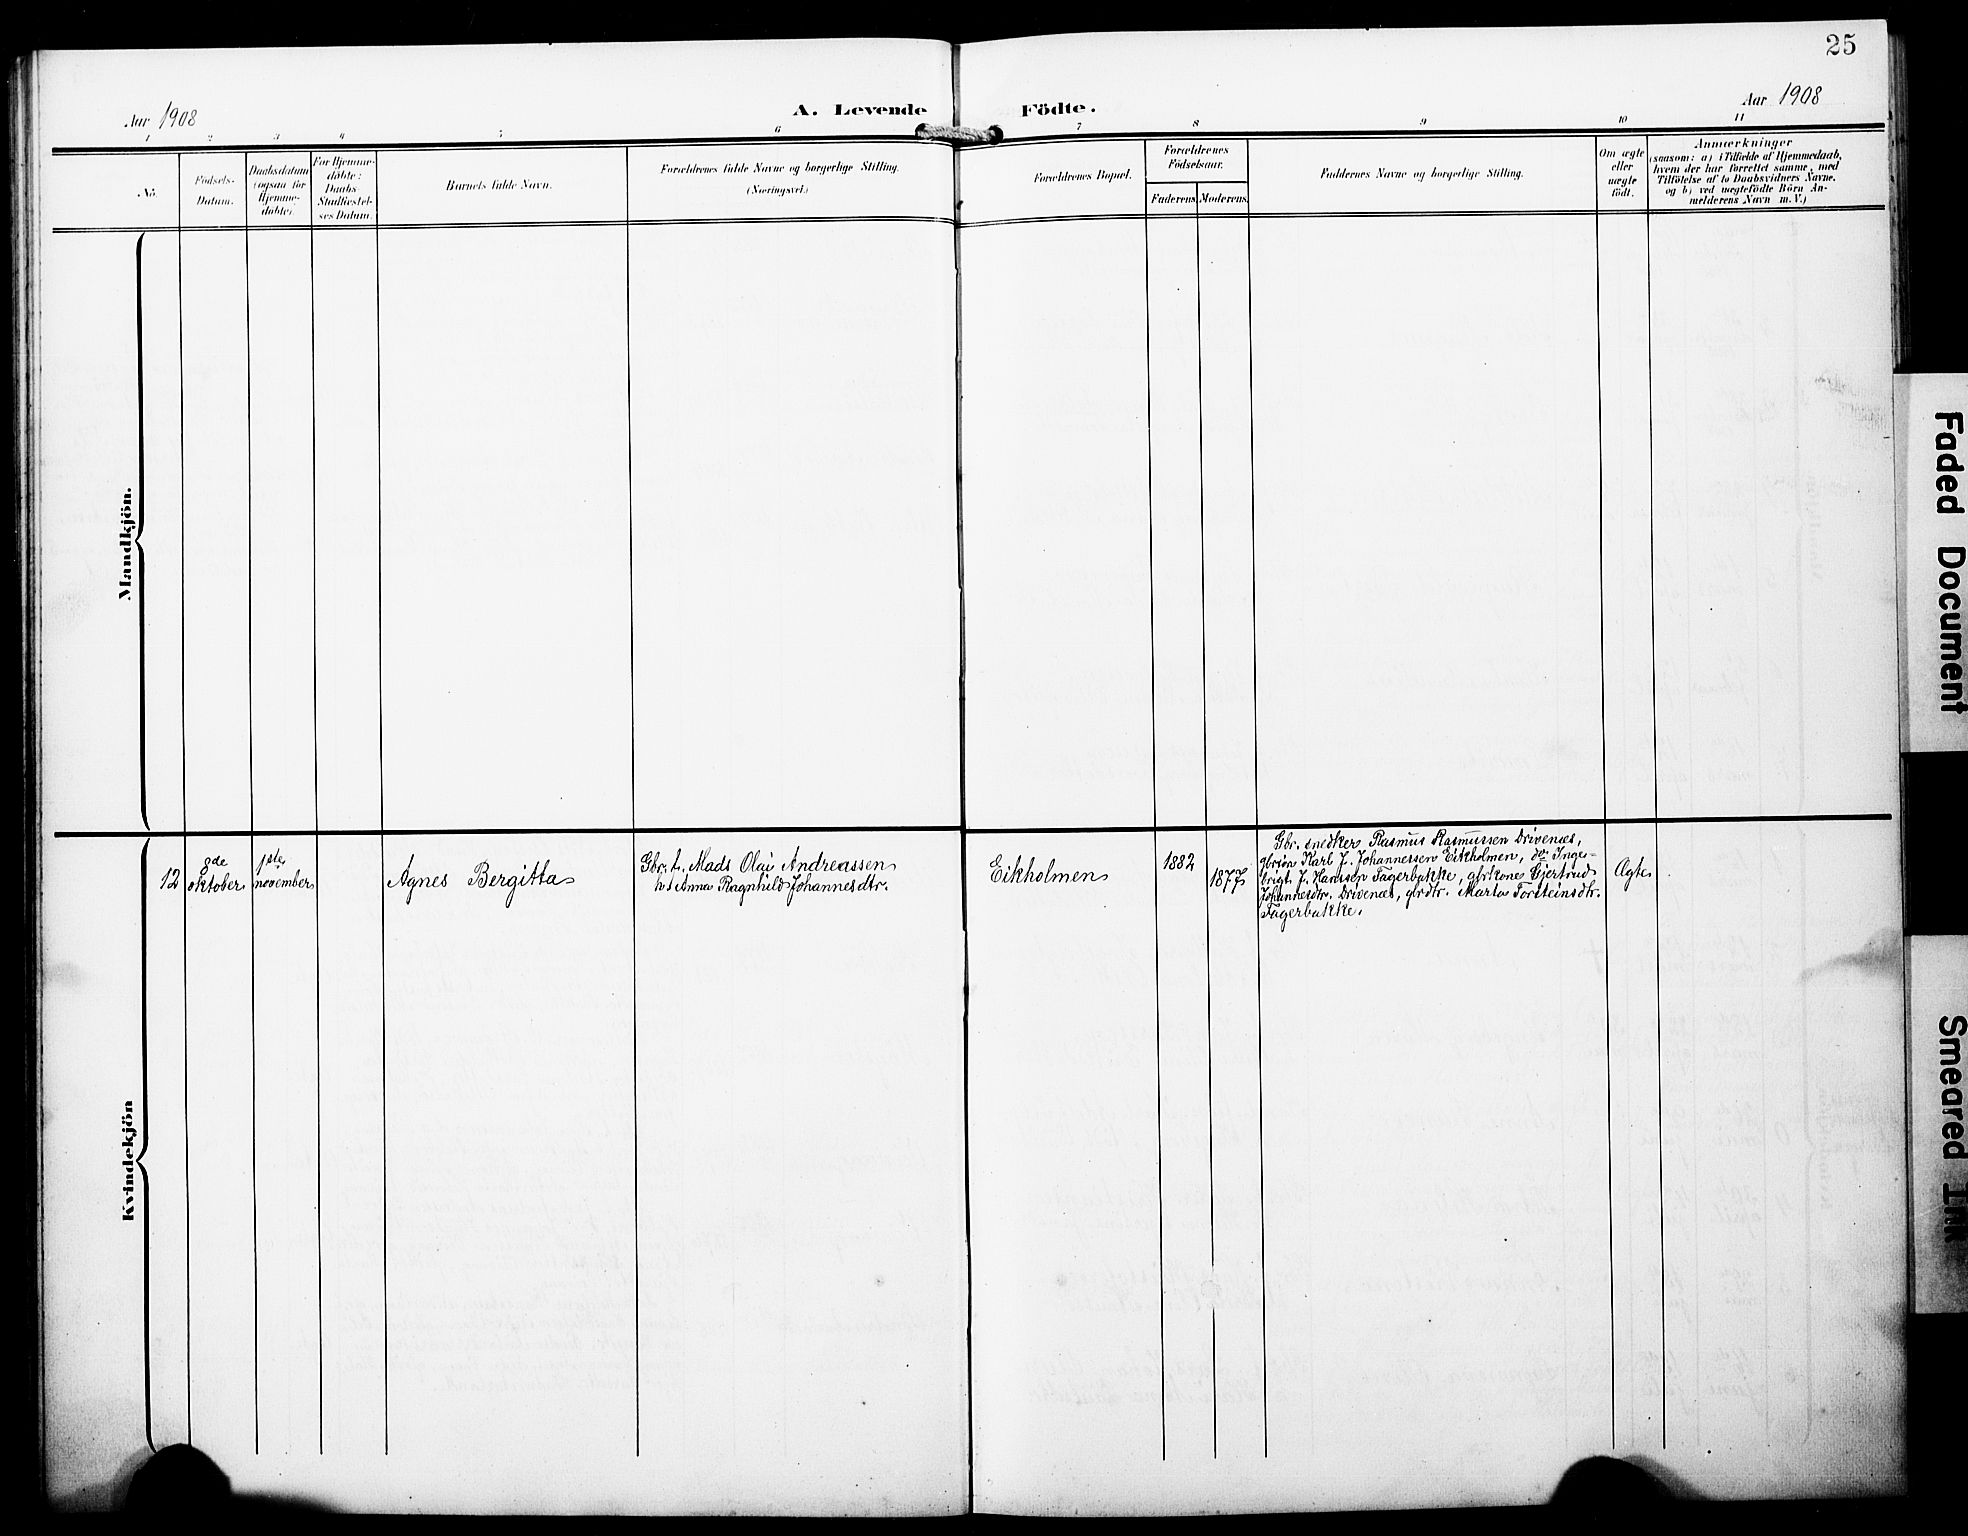 25
Aar 1908
A. Levende Födte.
Aar 1908
1 2 3 4 5 6 7 8 9 10 11
No.
Fødsels-
Datum.
Daabsdatum
(ogsaa for
Hjemme-
døbte).
For Hjemme-
døbte:
Daabs-
Stadfæstel-
ses Datum.
Barnets fulde Navn.
Forældrenes fulde Navne og borgerlige Stilling.
(Næringsvei.)
Forældrenes Bopæl.
Forældrenes
Födselsaar.
Faderens
Moderens
Faddernes Navne og borgerlige Stilling.
Om ægte
eller
uægte
født.
Anmærkninger
(saasom: a) i Tilfælde af Hjemmedaab,
hvem der har forrettet samme, med
Tilföielse af to Daabsvidners Navne,
og b) ved uægtefödte Börn An-
melderens Navn m. V.)
Mandkjön.
Kvindekjön
12
8de
oktober
1ste
november
Agnes Bergitta
Gbr. L. Mads Olai Andreassen
h. Anna Ragnhild Johannesdtr.
Eikholmen
1882
1877
Gbr. snedker Rasmus Rasmussen Drivenes,
gbrsøn Karl J. Johannessen Eikholmen, do. Inge-
brigt J. Hanssen Fagerbakke, gbrkone Gjertrud
Johannesdtr. Drivenes, gbrdtr. Marta Torsteinsdtr.
Fagerbakke.
Ægte
Faded Document
Smeared Ink